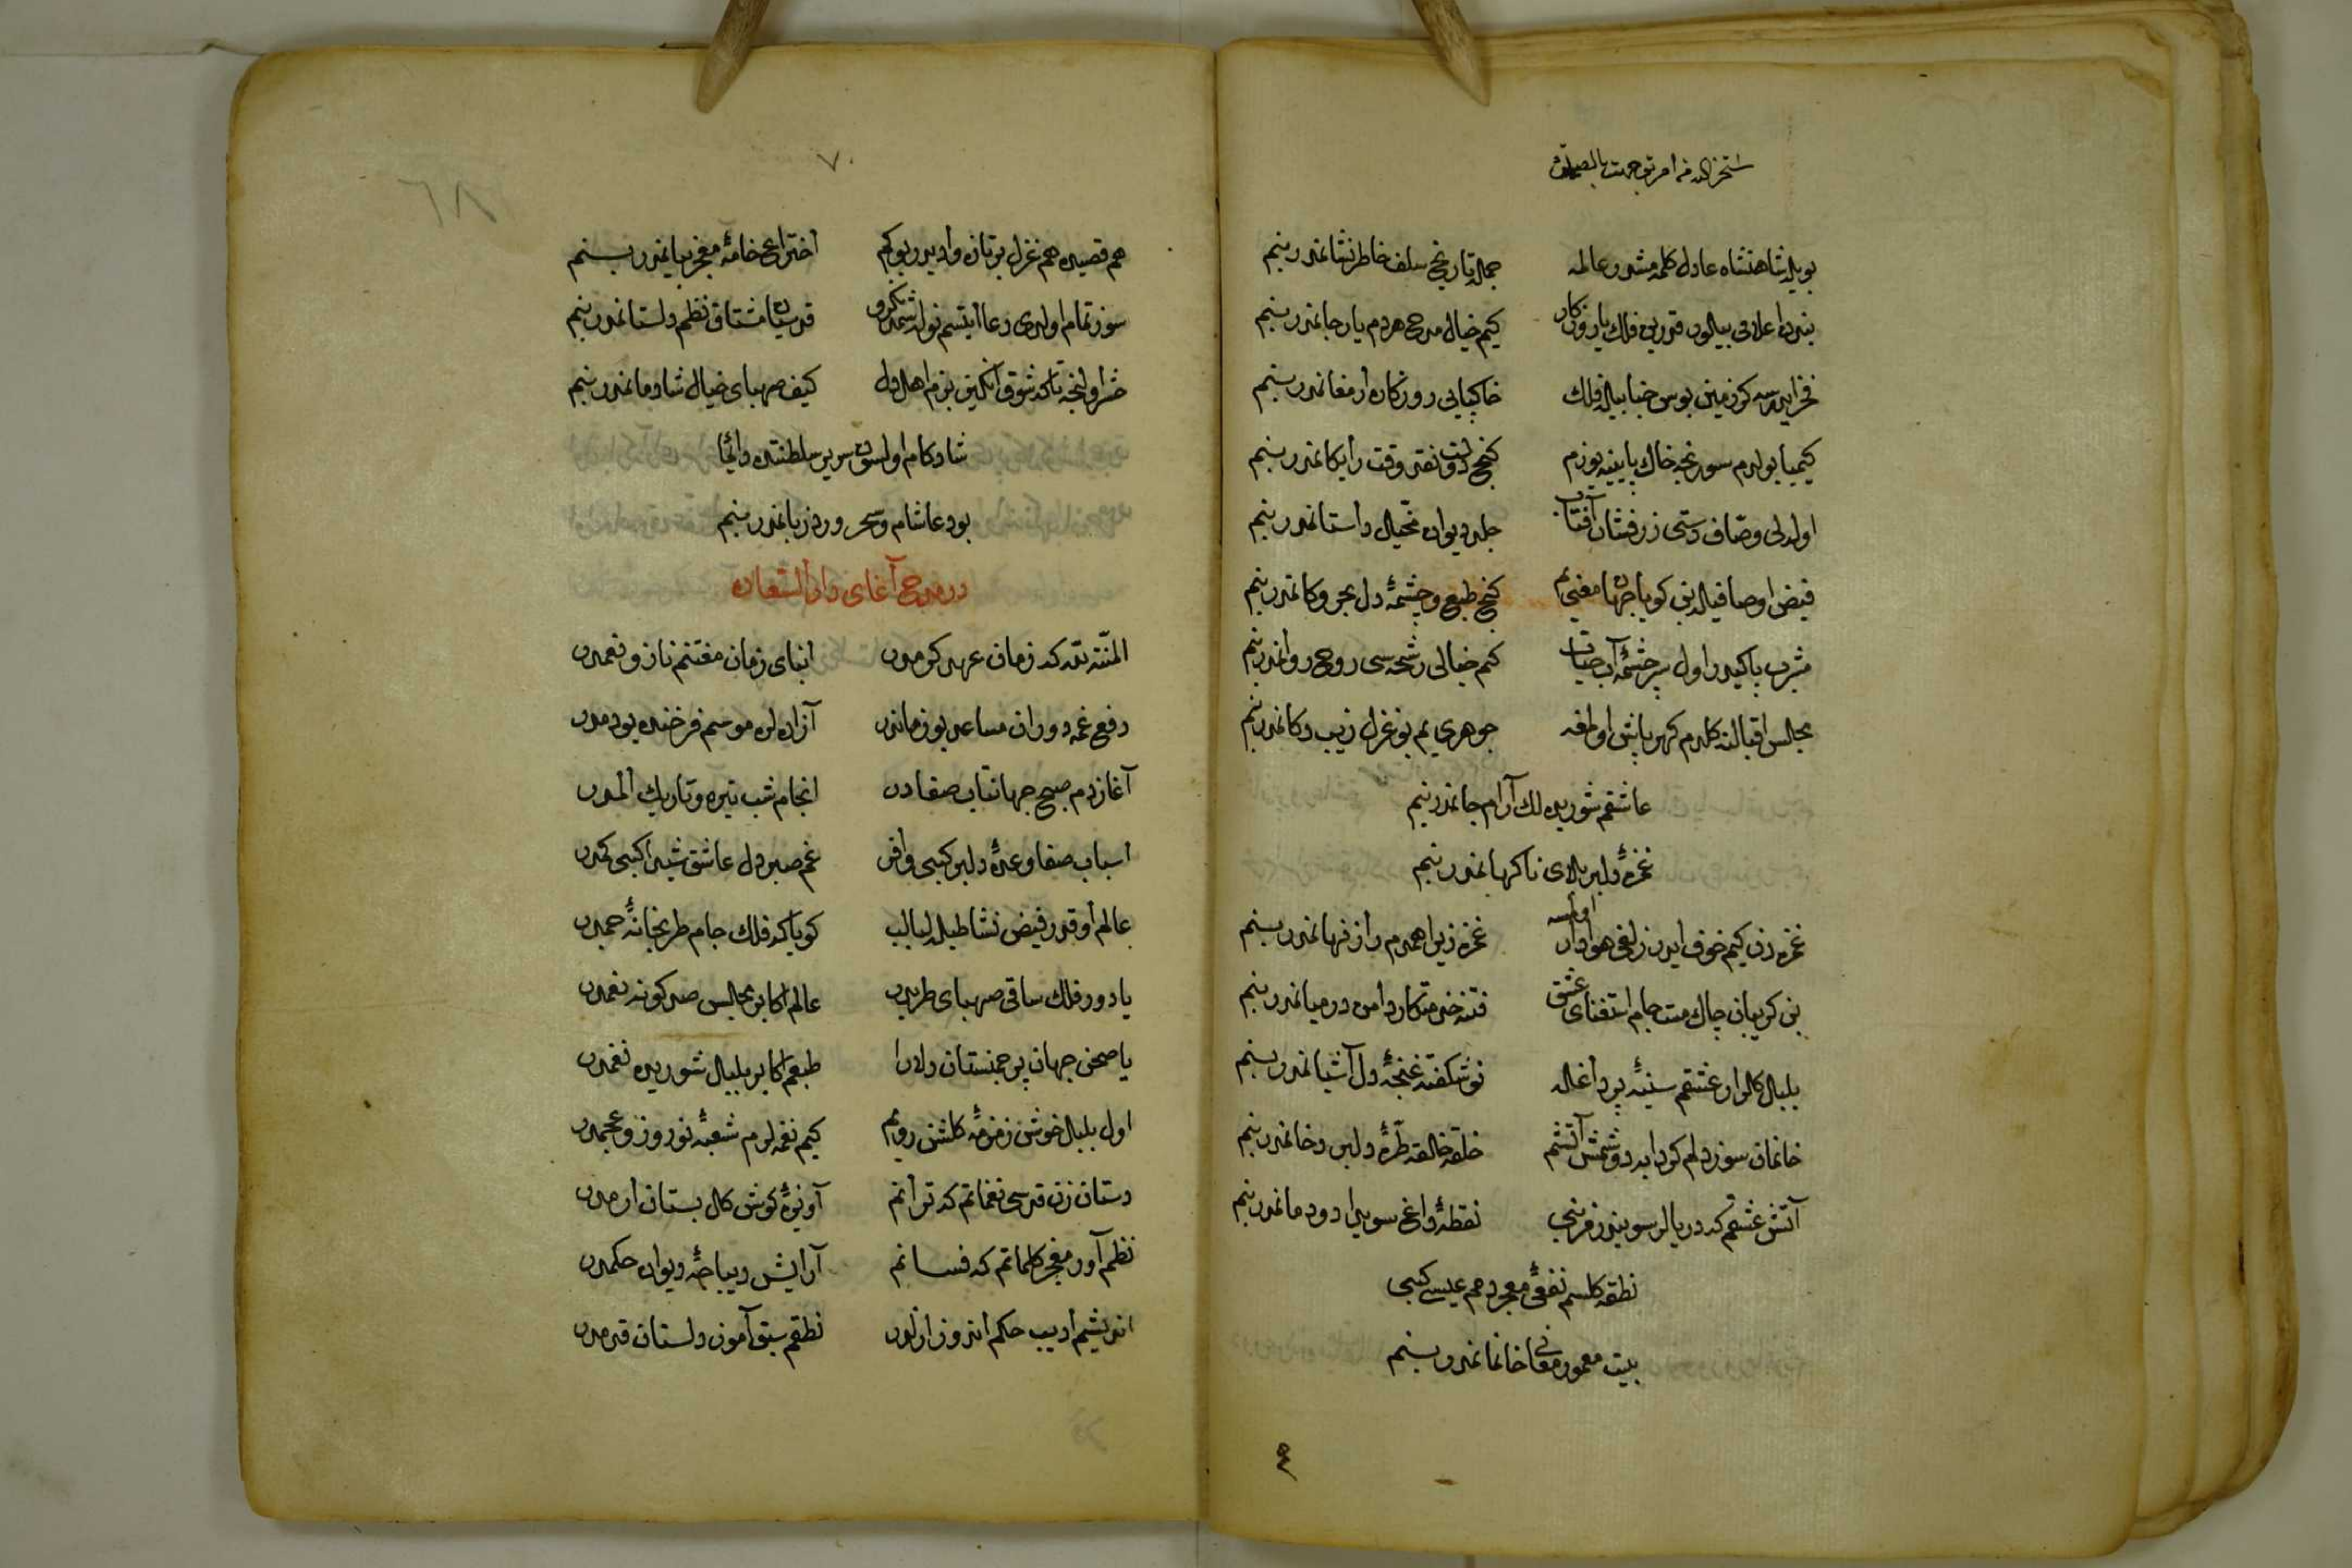 بویله شاهنشاه عادل کلمه‌مشدر عالمه جمله تاریخ سلف خاطر نشانمدر بنم
بنده اعلادن بیلور قدرین فلک یا روزکار کیم خیال مدحی هردم یار جانمدر بنم
فخر ایدرسه کر زمین بوس جنابیله فلک خاکپایی روزکاره ارمغانمدر بنم
کیمیا بولدم سورنجه خاک پایینه یوزم کنج دولت نقد وقت رایکانمدر بنم
اولدلی وصاف دستی زرفشان آفتاب جلد دیوان مخیل داستانمدر بنم
فیض اوصافیله بن کویا جهان معنی‌یم کنج طبع و چشمهٔ دل بحر و کانمدر بنم
مشرب پاکیدر اول سرچشمهٔ آب حیات کیم خیالی رشحه‌سی روح روانمدر بنم
مجلس اقبالنه کلدم کهرپاش اولمغه جوهری‌یم بو غزل زیب دکانمدر بنم
عاشقم شوریده‌لک آرام جانمدر بنم
غمزهٔ دلبر بلای ناکهانمدر بنم
غمزه‌دن کیم خوف ایدر زلفی هوادار اولمسه غمزه زیرا همدم راز نهانمدر بنم
بن کریبان چاک مست جام استغنای عشق فتنه خدمتکار دامن درمیانمدر بنم
بلبل کلزار عشقم سینهٔ پر داغله نوشکفته غنچهٔ دل آشیانمدر بنم
خانمان سوز دلم کور دایه دوشمش آتشم حلقه حلقه طرهٔ دلبر دخانمدر بنم
آتش عشقم که دریالر سویندرمز بنی نقطهٔ داغ سویدا دودمانمدر بنم
نطقه کلسم نفعی معجز دم عیسی کبی
بیت معمور معانی خانمانمدر بنم
٧٠
هم قصیده هم غزل بر تازه وادیدر بو کیم اختراع خامهٔ معجز بیانمدر بنم
سوز تمام اولدی دعا ایتسم نوله شمدنکرو قدسیان مشتاق نظم دلستانمدر بنم
حشر اولنجه تا که شوق انکیز بزم اهل دل کیف صهبای خیال شادمانمدر بنم
شادکام اولسون سریر سلطنتده دائما
بو دعا شام و سحر ورد زبانمدر بنم
در مدح آغای دار السعاده
المنة لله که زمان عهد کرمدر ابنای زمان مغتنم ناز و نعمدر
دفع غمه دوران مساعد بو زماندر آزاده‌لره موسم فرخنده بودمدر
آغاز دم صبح جهانتاب صفادر انجام شب تیره و تاریک المدر
اسباب صفا وعدهٔ دلبر کبی وافر غم صبر دل عاشق شیدا کبی کمدر
عالم اوقدر فیض نشاطیله لبالب کویا که فلک جام طربخانهٔ جمدر
یا دور فلک ساقی صهبای طربدر عالم اکا بر مجلس صد کونه نعمدر
یا صحن جهان بر چمنستان دلارا طبعم اکا بر بلبل شوریده نغمدر
اول بلبل خوش زمزمهٔ کلشن رویم کیم نغمه‌لرم شعبهٔ نوروز و عجمدر
دستان زن قدسی نغماتم که ترانم آویزهٔ کوش کل بستان ارمدر
نظم آور معجز کلماتم که فسانم آرایش دیباجهٔ دیوان حکمدر
اندیشه‌م ادیب حکم اندوز ازلدر نطقم سبق آموز دلستان قدمدر